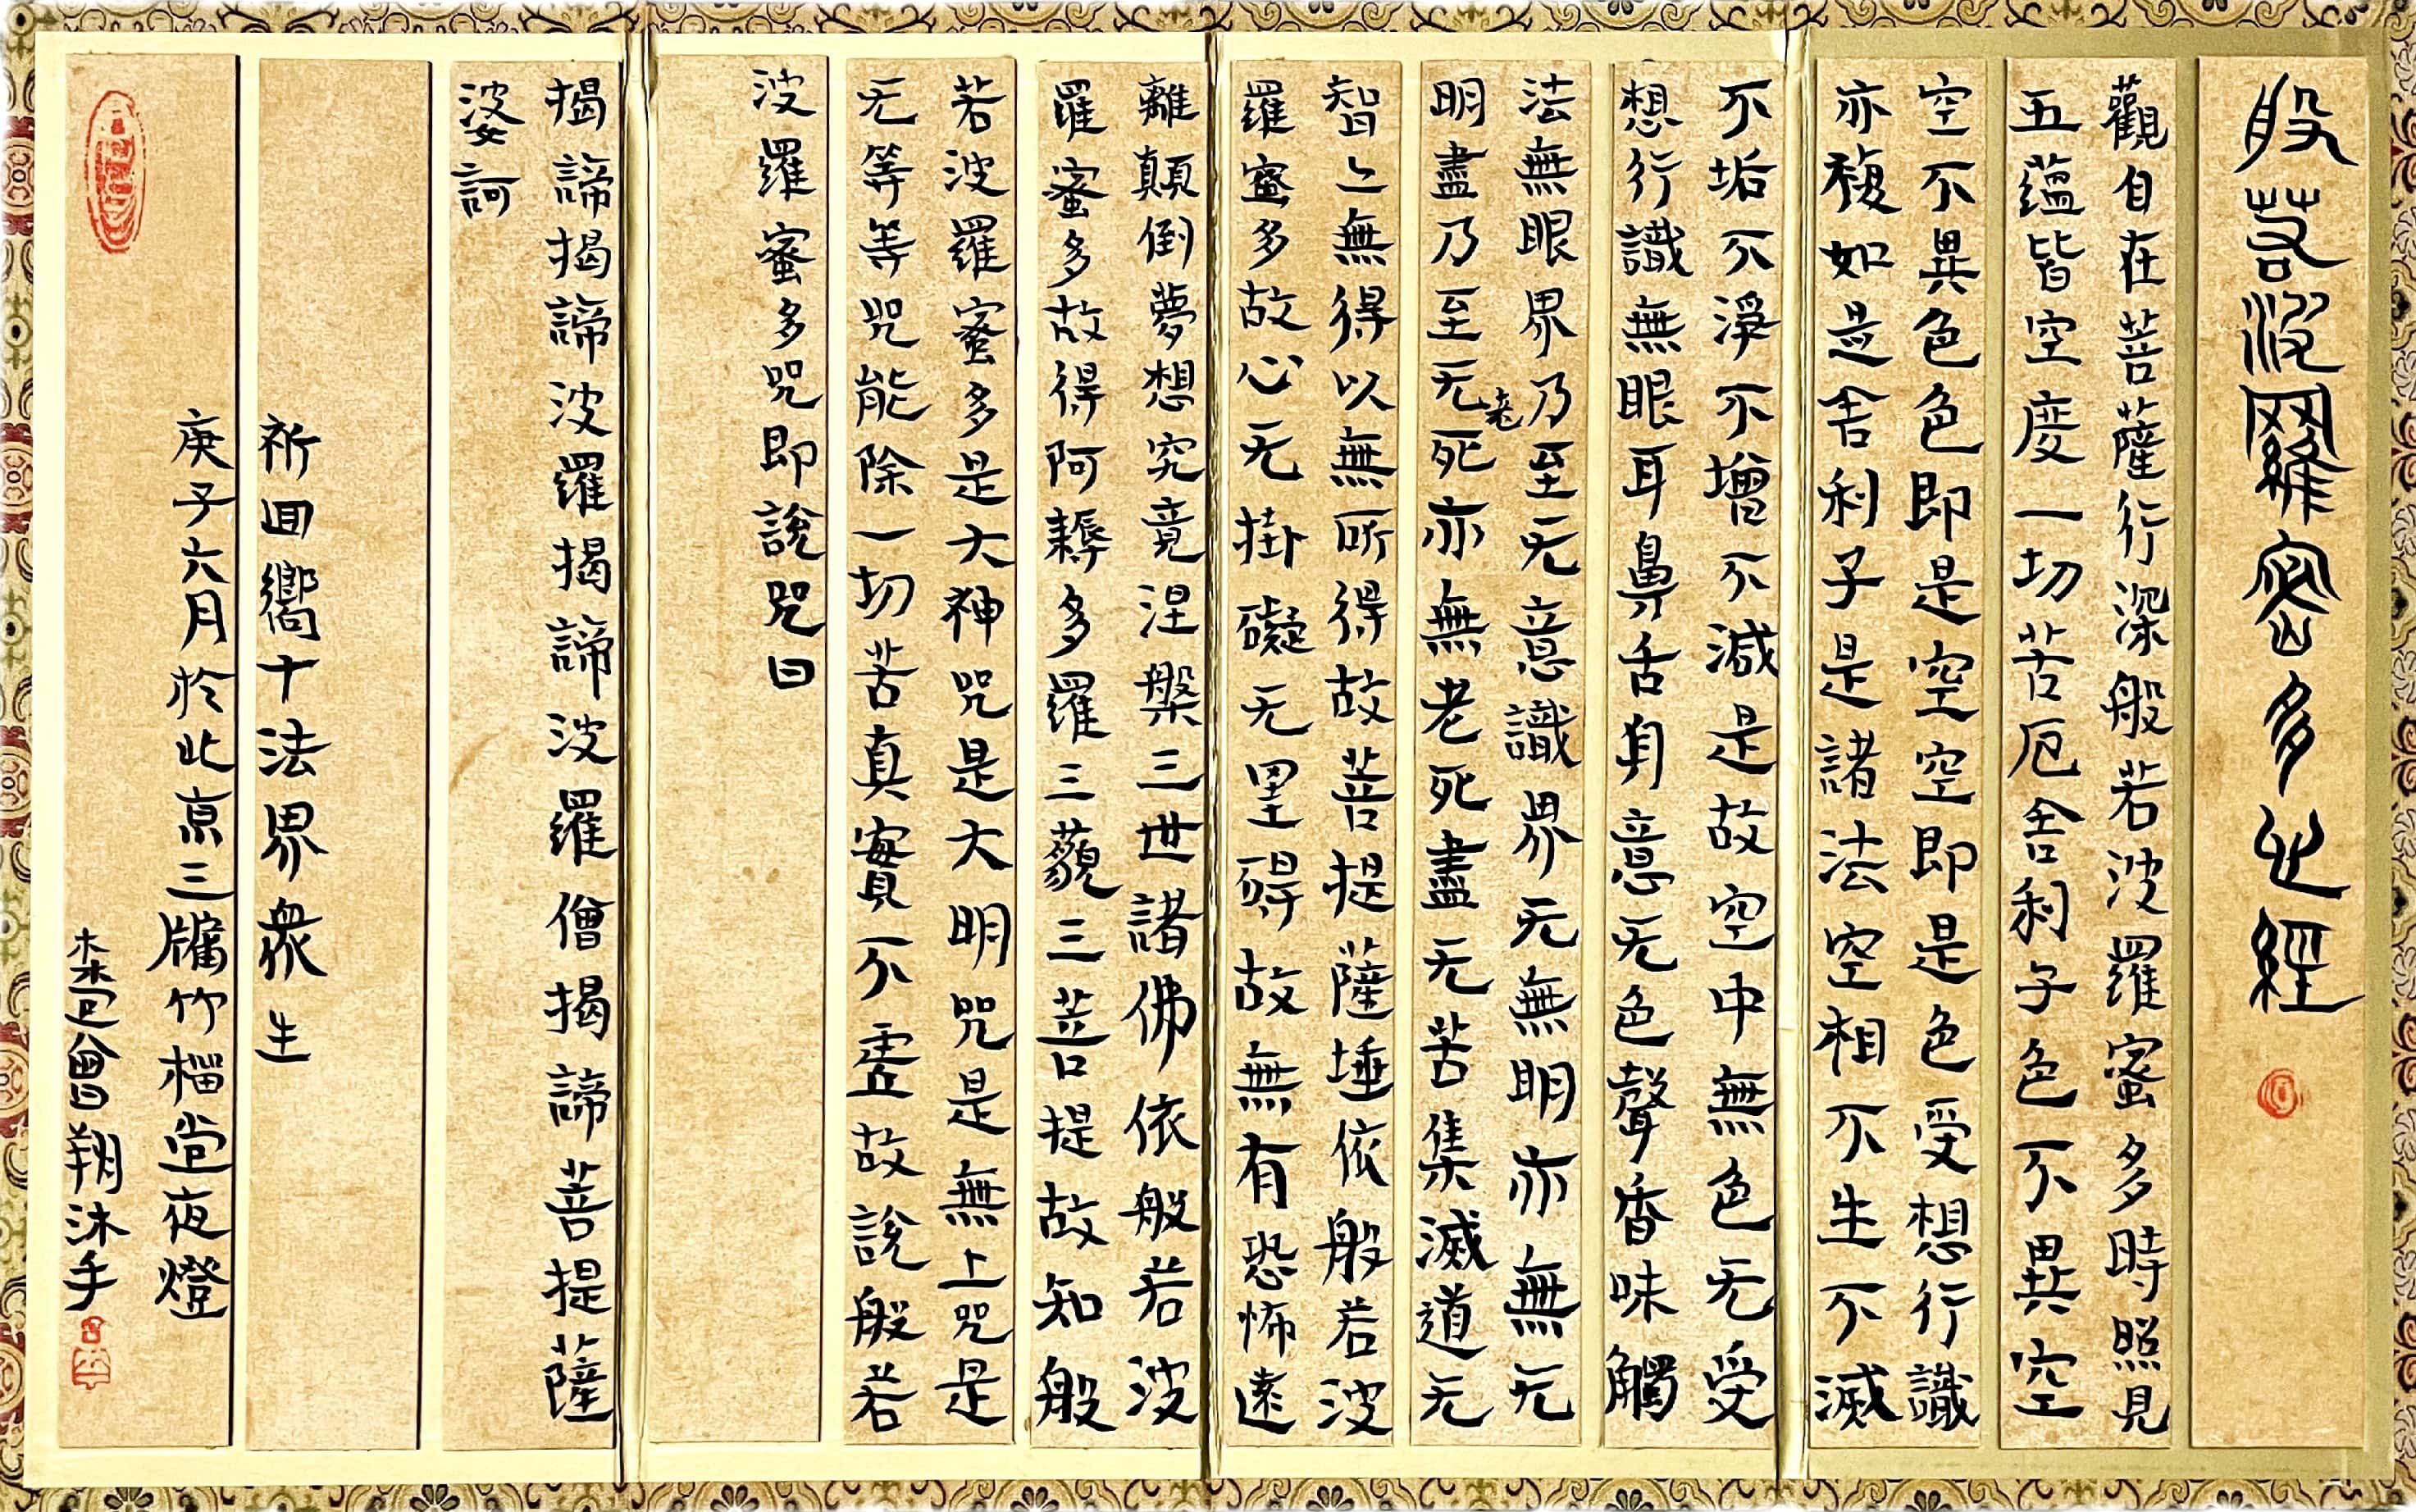 般若波羅密多心經
觀自在菩薩行深般若波羅蜜多時照見
五蘊皆空度一切苦厄舍利子色不異空
空不異色色即是空空即是色受想行識
亦複如是舍利子是諸法空相不生不滅
不垢不淨不增不減是故空中無色无受
想行識無眼耳鼻舌身意无色聲香味觸
法無眼界乃至无意識界无無明亦無无
明盡乃至无老死亦無老死盡无苦集滅道无
智亡無得以無所得故菩提薩埵依般若波
羅蜜多故心无掛礙无罣碍故無有恐怖遠
離顛倒夢想究竟涅槃三世諸佛依般若波
羅蜜多故得阿耨多羅三藐三菩提故知般
若波羅蜜多是大神咒是大明咒是無上咒是
无等等咒能除一切苦真實不虛故說般若
波羅蜜多咒即說咒曰
揭諦揭諦波羅揭諦波羅僧揭諦菩提薩
婆訶
祈回嚮十法界衆生
庚子六月於北京三牖竹榴堂夜燈
曾翔沐手